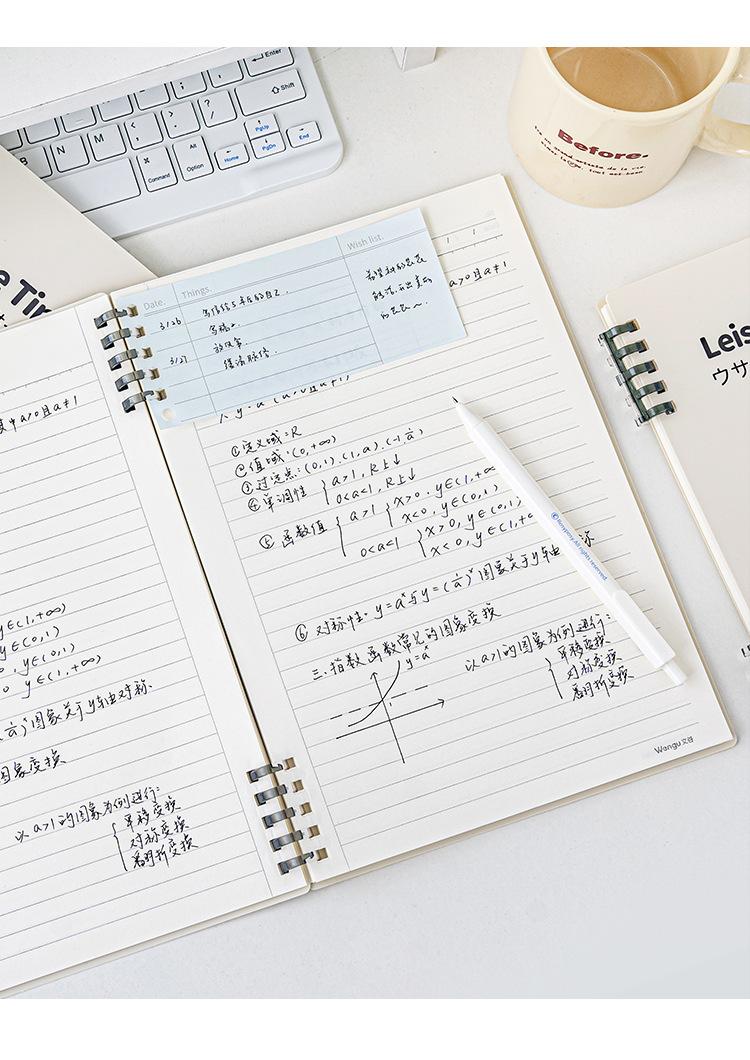 Enter
Shift
PgUp
PgDn
End
Home
Option
Alt
Command
B
N
M
Before.
Leis
ウサ
e Tin
Date.
Things.
Wish list.
3/26
写信给5年后的自己.
放风筝
3/27
a>0且a≠1
其中a>0且a≠1
①定义域=R
②值域:(0,+∞)
③过定点:(0,1).(1,a).(-1,1/a)
④单调性
a>1, R上↓
0<a<1, R上↓
⑤函数值
a>1
x>0, y∈(1,+∞
x<0, y∈(0,1)
0<a<1
x>0, y∈(0,1)
x<0, y∈(1,+∞
⑥对称性. y=aˣ与y=(1/a)ˣ图象关于y轴
三.指数函数常见的图象变换
y=aˣ
以a>1的图象为例进行:
平移变换
对称变换
翻折变换
Wangu 文谷
©Nosyposy-All rights reserved.
y∈(1,+∞)
y∈(0,1)
, y∈(0,1)
y∈(1,+∞)
图象关于y轴对称.
图象变换
以a>1的图象为例进行:
平移变换
对称变换
翻折变换